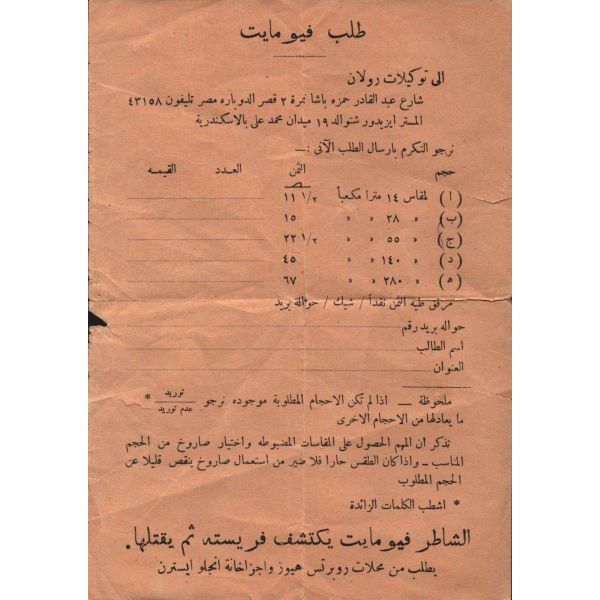 طلب فيومايت
الى توكيلات رولان
شارع عبد القادر حمزه باشا نمرة ٢ قصر الدوباره مصر تليفون ٤٣١٥٨
المستر ايزيدور شتوالد ١٩ ميدان محمد على بالاسكندرية
نرجو التكرم بارسال الطلب الآتى :—
حجم الثمن العدد القيمه
(ا) لمقاس ١٤ مترا مكعباً ١١ ١/٢
(ب) » ٢٨ » » ١٥
(ج) » ٥٥ » » ٢٢ ١/٢
(د) » ١٤٠ » » ٤٥
(ه) » ٢٨٠ » » ٦٧
مرفق طيه الثمن نقداً / شيك / حوالة بريد
حواله بريد رقم
اسم الطالب
العنوان
ملحوظة — اذا لم تكن الاحجام المطلوبة موجوده نرجو توريد / عدم توريد *
ما يعادلها من الاحجام الاخرى
تذكر ان المهم الحصول على المقاسات المضبوطه واختيار صاروخ من الحجم
المناسب — واذا كان الطقس حارا فلا ضير من استعمال صاروخ ينقص قليلا عن
الحجم المطلوب
* اشطب الكلمات الزائدة
الشاطر فيومايت يكتشف فريسته ثم يقتلها.
يطلب من محلات روبرتس هيوز واجزاخانة انجلو ايسترن